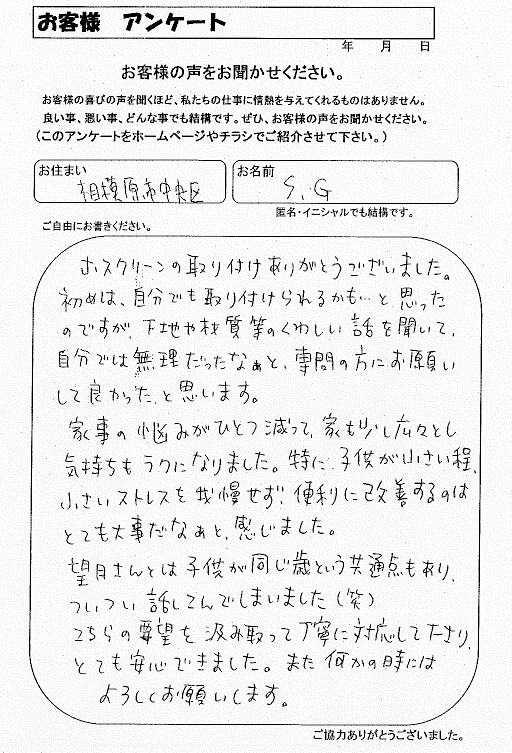 お客様 アンケート
年 月 日
お客様の声をお聞かせください。
お客様の喜びの声を聞くほど、私たちの仕事に情熱を与えてくれるものはありません。
良い事、悪い事、どんな事でも結構です。ぜひ、お客様の声をお聞かせください。
(このアンケートをホームページやチラシでご紹介させて下さい。)
お住まい
相模原市中央区
お名前
S.G
匿名・イニシャルでも結構です。
ご自由にお書きください。
ホスクリーンの取り付けありがとうございました。
初めは、自分でも取り付けられるかも…と思った
のですが、下地や材質等のくわしい話を聞いて、
自分では無理だったなぁと、専門の方にお願い
して良かった、と思います。
家事の悩みがひとつ減って、家も少し広々とし
気持ちもラクになりました。特に、子供が小さい程、
小さいストレスを我慢せず、便利に改善するのは
とても大事だなぁと、感じました。
望月さんとは子供が同じ歳という共通点もあり、
ついつい話しこんでしまいました(笑)
こちらの要望を汲み取って丁寧に対応して下さり、
とても安心できました。また何かの時には
よろしくお願いします。
ご協力ありがとうございました。